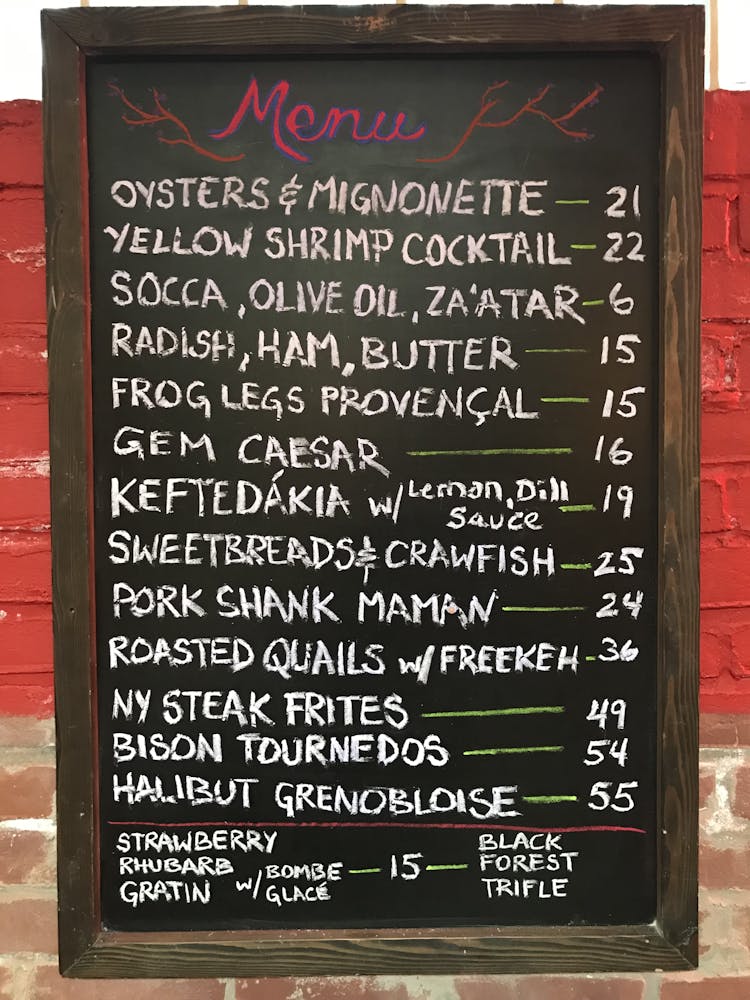 Menu
OYSTERS & MIGNONETTE — 21
YELLOW SHRIMP COCKTAIL — 22
SOCCA, OLIVE OIL, ZA'ATAR — 6
RADISH, HAM, BUTTER — 15
FROG LEGS PROVENÇAL — 15
GEM CAESAR — 16
KEFTEDÁKIA w/ Lemon, Dill — 19
Sauce
SWEETBREADS & CRAWFISH — 25
PORK SHANK MAMAN — 24
ROASTED QUAILS w/ FREEKEH - 36
NY STEAK FRITES — 49
BISON TOURNEDOS — 54
HALIBUT GRENOBLOISE — 55
STRAWBERRY
RHUBARB
GRATIN w/ BOMBE
GLACÉ
— 15 —
BLACK
FOREST
TRIFLE